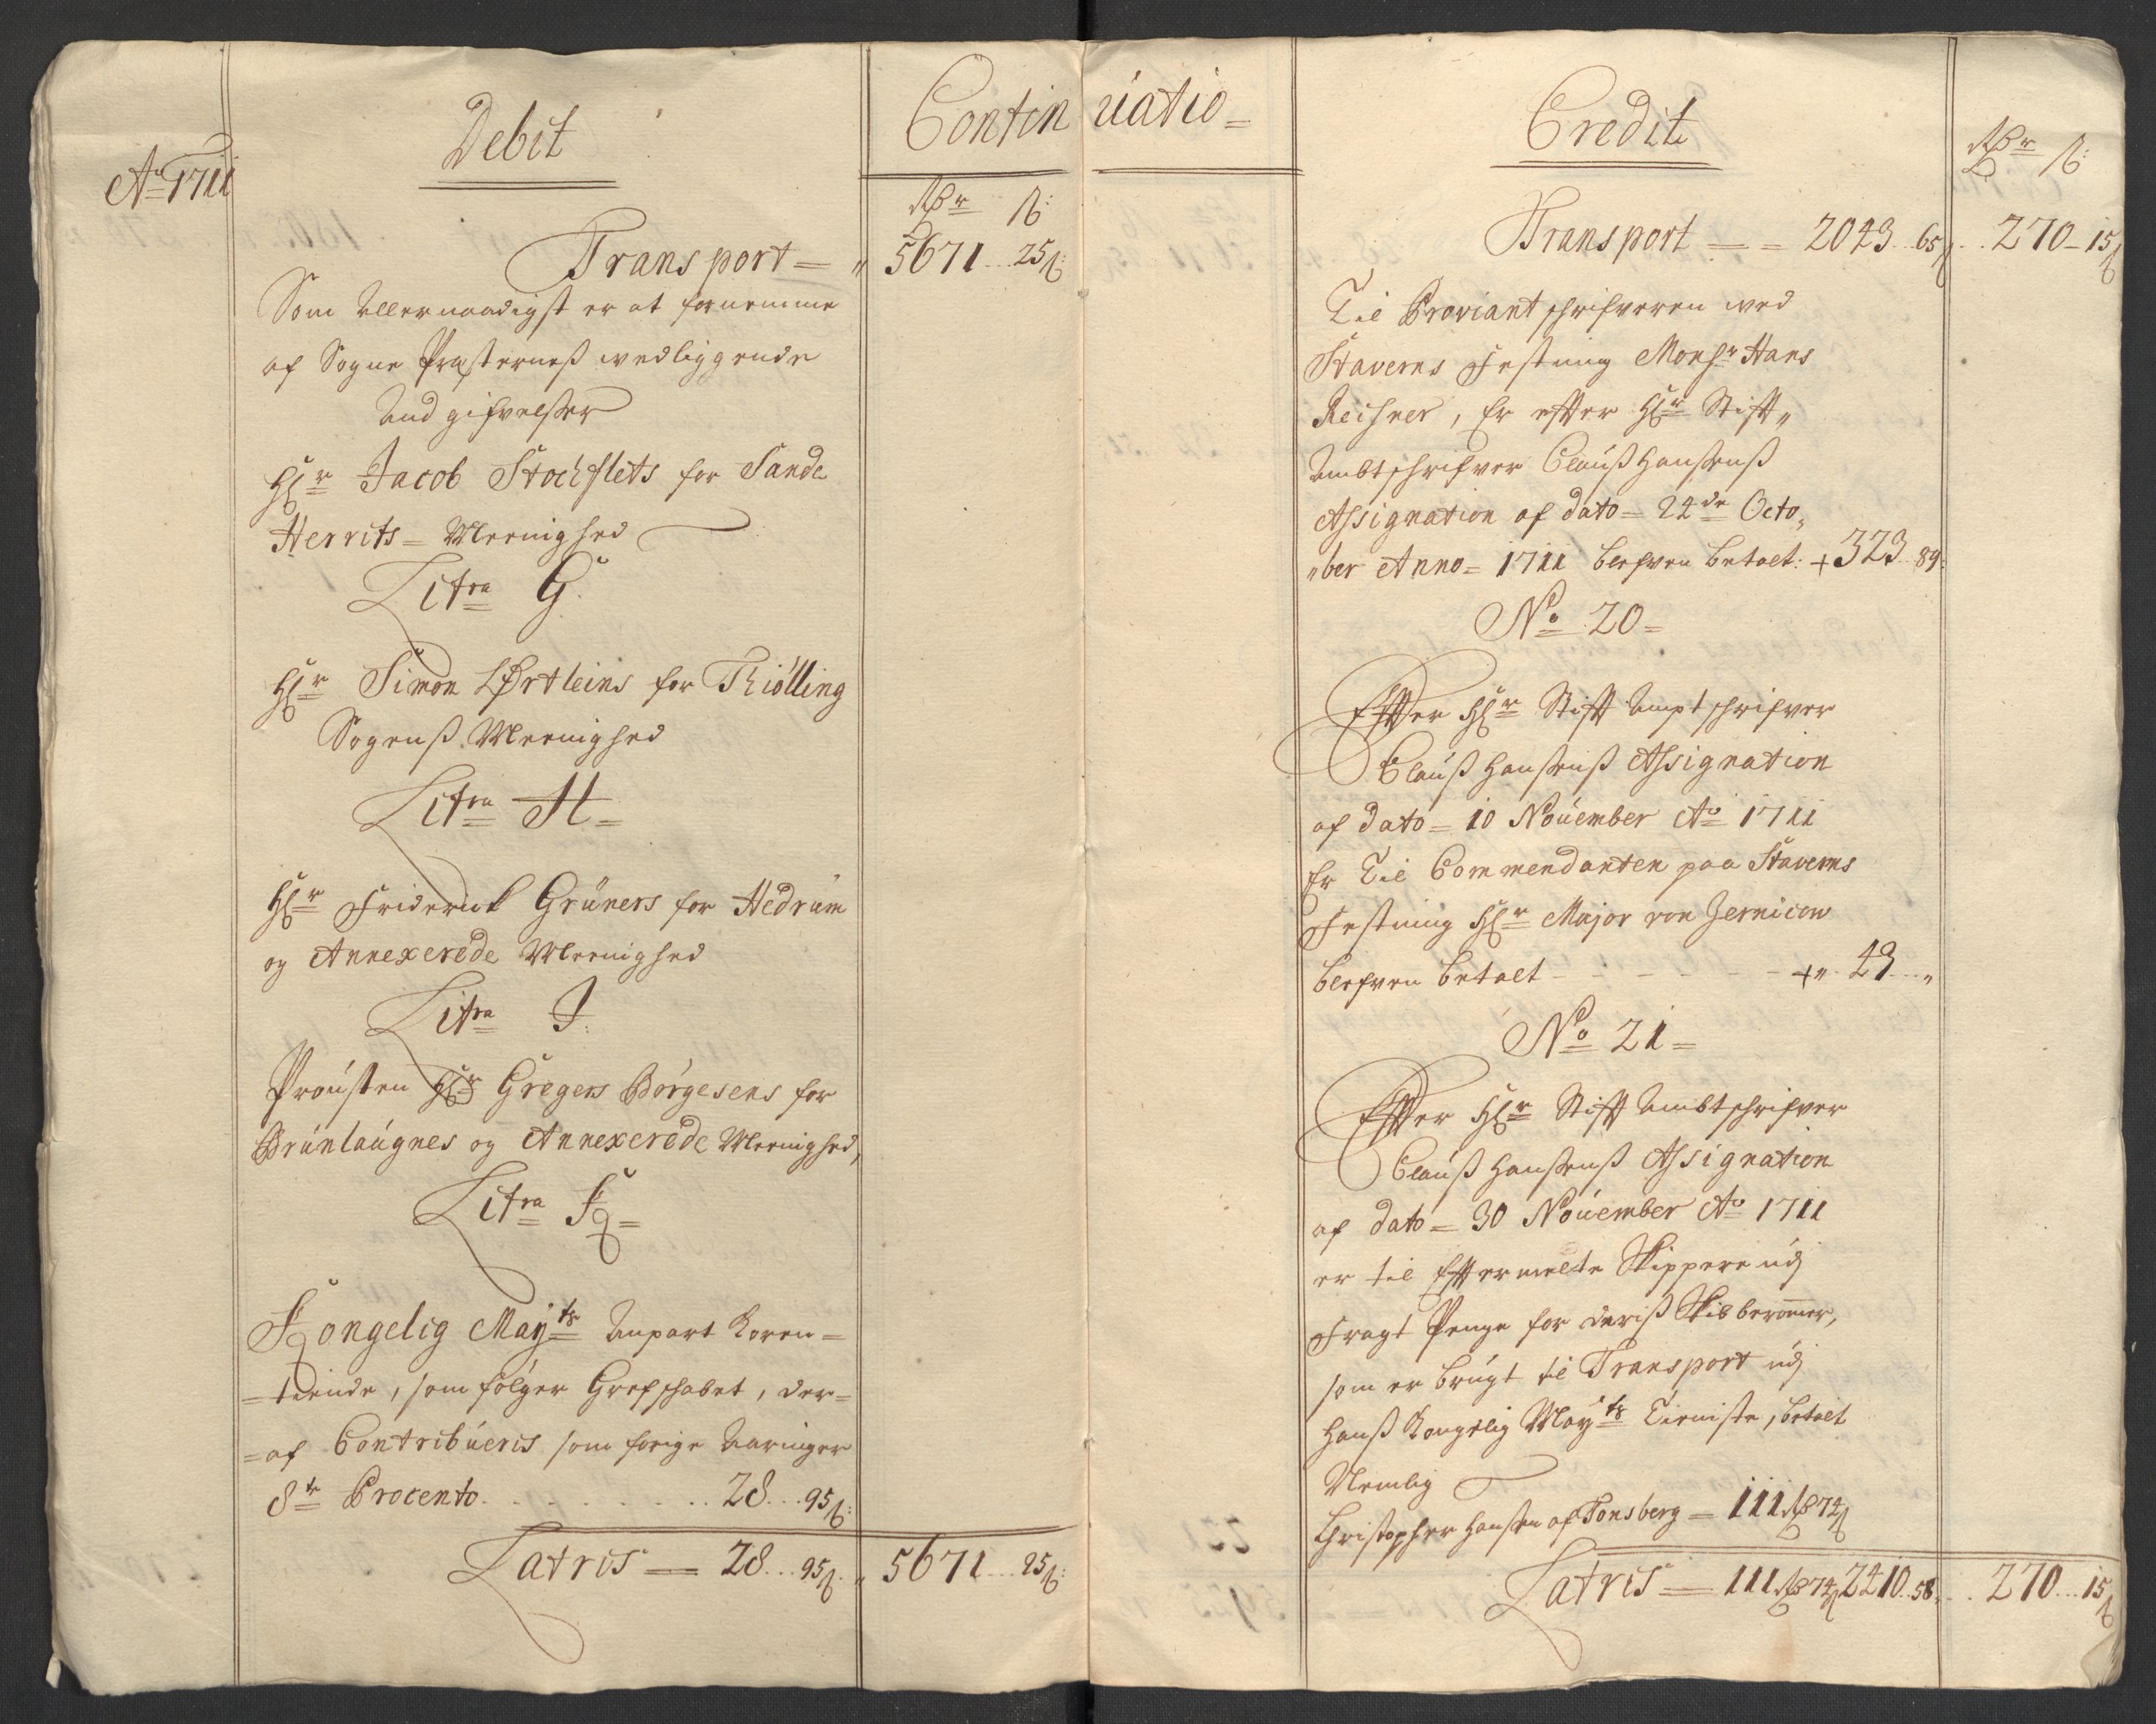 Ao 1711
Debit
Continuatio =
Rdr ß:
Transport = " 5671 .. 25ß:
Som Allernaadigst er at fornemme
af Sogne Præsterness wedliggende
Udgifvelsser
Hr Jacob Stochflets for Sande
Herrits = Meenighed
Litra G.
Hr Simon Lørtleins for Thiølling
Sogenß Meenighed
Litra H =
Hr Friderick Grüners for Hedrum
og Annexerede Meenighed
Litra I:
Proústen Hr Gregers Børgesens for
Brúnlaúgnes og Annexerede Meenighed,
Litra K =
Kongelig Mayts Anpart Koren =
= tiende, som følger Grefschabet, der =
= af Contribúeris som forige Aaringer
8te Procento . . . . . . . . 28 .. 95ß:
Latris = 28 .. 95ß. " 5671 .. 25ß:
Credit
Rdr ß:
Transport = = 2043 .. 65ß .. 270 - 15ß
Til Proviantschrifveren wed
Staverns Festning Monsr Hans
Reisner, Er effter Hr Stift"
Ambtschrifver Claúß Hanßenß
Assignation af dato = 24de Octo"
"ber Anno = 1711 blefven betalt: + 323 .. 89.
No 20 =
Effter Hr Stifft Amptschrifver
Claúß Hanßenß Assignation
af dato = 10 Nouember Ao 1711
Er Til Commendanten paa Staverns
Festning Hr Major von Zernicow
blefven betalt - - - - - - + " 43 .. "
No 21 =
Effter Hr Stifft Ambtschrifver
Claúß Hanßenß Assignation
af dato = 30 Nouember Ao 1711
er til Efftermelte Skippere údj
Fragt Penge for deriß Skibberommer,
som er brúgt til Transport údj
Hanß Kongelig Mayts Tieniste, betalt
Nemlig
Christopher Hanßen af Tonsberg = 111 Rd 74ß
Latris = 111 Rd 74ß 2410 .. 58 " .. 270 .. 15ß